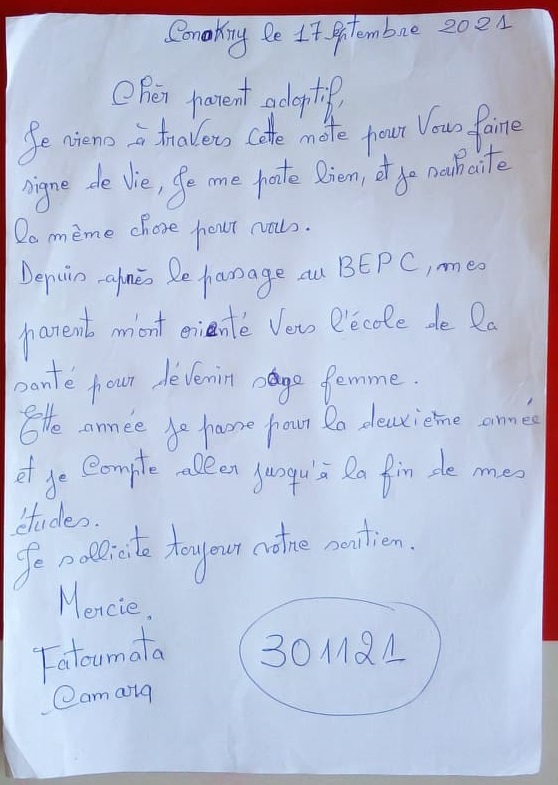 Conakry le 17 septembre 2021
Chèr parent adoptif,
Je viens à travers Cette note pour Vous faire
signe de vie, Je me porte bien, et je souhaite
la même chose pour vous.
Depuis après le passage au BEPC, mes
parents m'ont orienté Vers l'école de la
santé pour dévenir sage femme.
Cette année je passe pour la deuxième année
et je Compte aller jusqu'à la fin de mes
études.
Je sollicite toujour votre soutien.
Mercie.
Fatoumata
Camara
301121